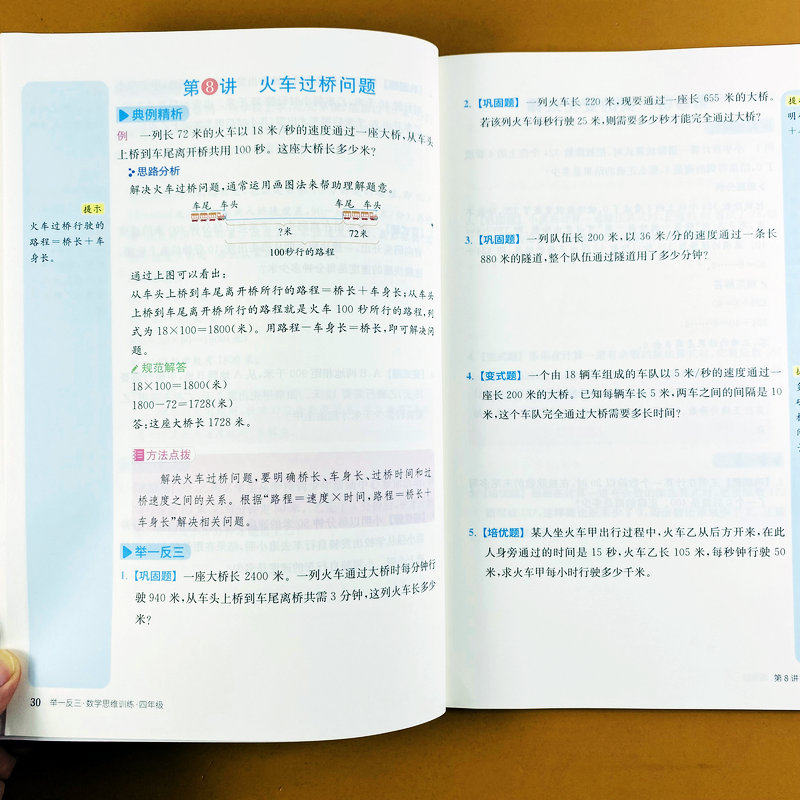 第8讲 火车过桥问题
典例精析
例 一列长 72 米的火车以 18 米/秒的速度通过一座大桥,从车头
上桥到车尾离开桥共用 100 秒。这座大桥长多少米?
思路分析
解决火车过桥问题,通常运用画图法来帮助理解题意。
车尾 车头 车尾 车头
?米 72米
100秒行的路程
提示
火车过桥行驶的
路程=桥长+车
身长。
通过上图可以看出:
从车头上桥到车尾离开桥所行的路程=桥长+车身长;从车头
上桥到车尾离开桥所行的路程就是火车 100 秒所行的路程,列
式为 18×100=1800(米)。用路程-车身长=桥长,即可解决问
题。
规范解答
18×100=1800(米)
1800-72=1728(米)
答:这座大桥长 1728 米。
方法点拨
解决火车过桥问题,要明确桥长、车身长、过桥时间和过
桥速度之间的关系。根据“路程=速度×时间,路程=桥长+
车身长”解决相关问题。
举一反三
1.【巩固题】一座大桥长 2400 米。一列火车通过大桥时每分钟行
驶 940 米,从车头上桥到车尾离桥共需 3 分钟,这列火车长多少
米?
30 举一反三·数学思维训练·四年级
2.【巩固题】一列火车长 220 米,现要通过一座长 655 米的大桥。
若该列火车每秒行驶 25 米,则需要多少秒才能完全通过大桥?
3.【巩固题】一列队伍长 200 米,以 36 米/分的速度通过一条长
880 米的隧道,整个队伍通过隧道用了多少分钟?
4.【变式题】一个由 18 辆车组成的车队以 5 米/秒的速度通过一
座长 200 米的大桥。已知每辆车长 5 米,两车之间的间隔是 10
米,这个车队完全通过大桥需要多长时间?
5.【培优题】某人坐火车甲出行过程中,火车乙从后方开来,在此
人身旁通过的时间是 15 秒,火车乙长 105 米,每秒钟行驶 50
米,求火车甲每小时行驶多少千米。
第 8 讲